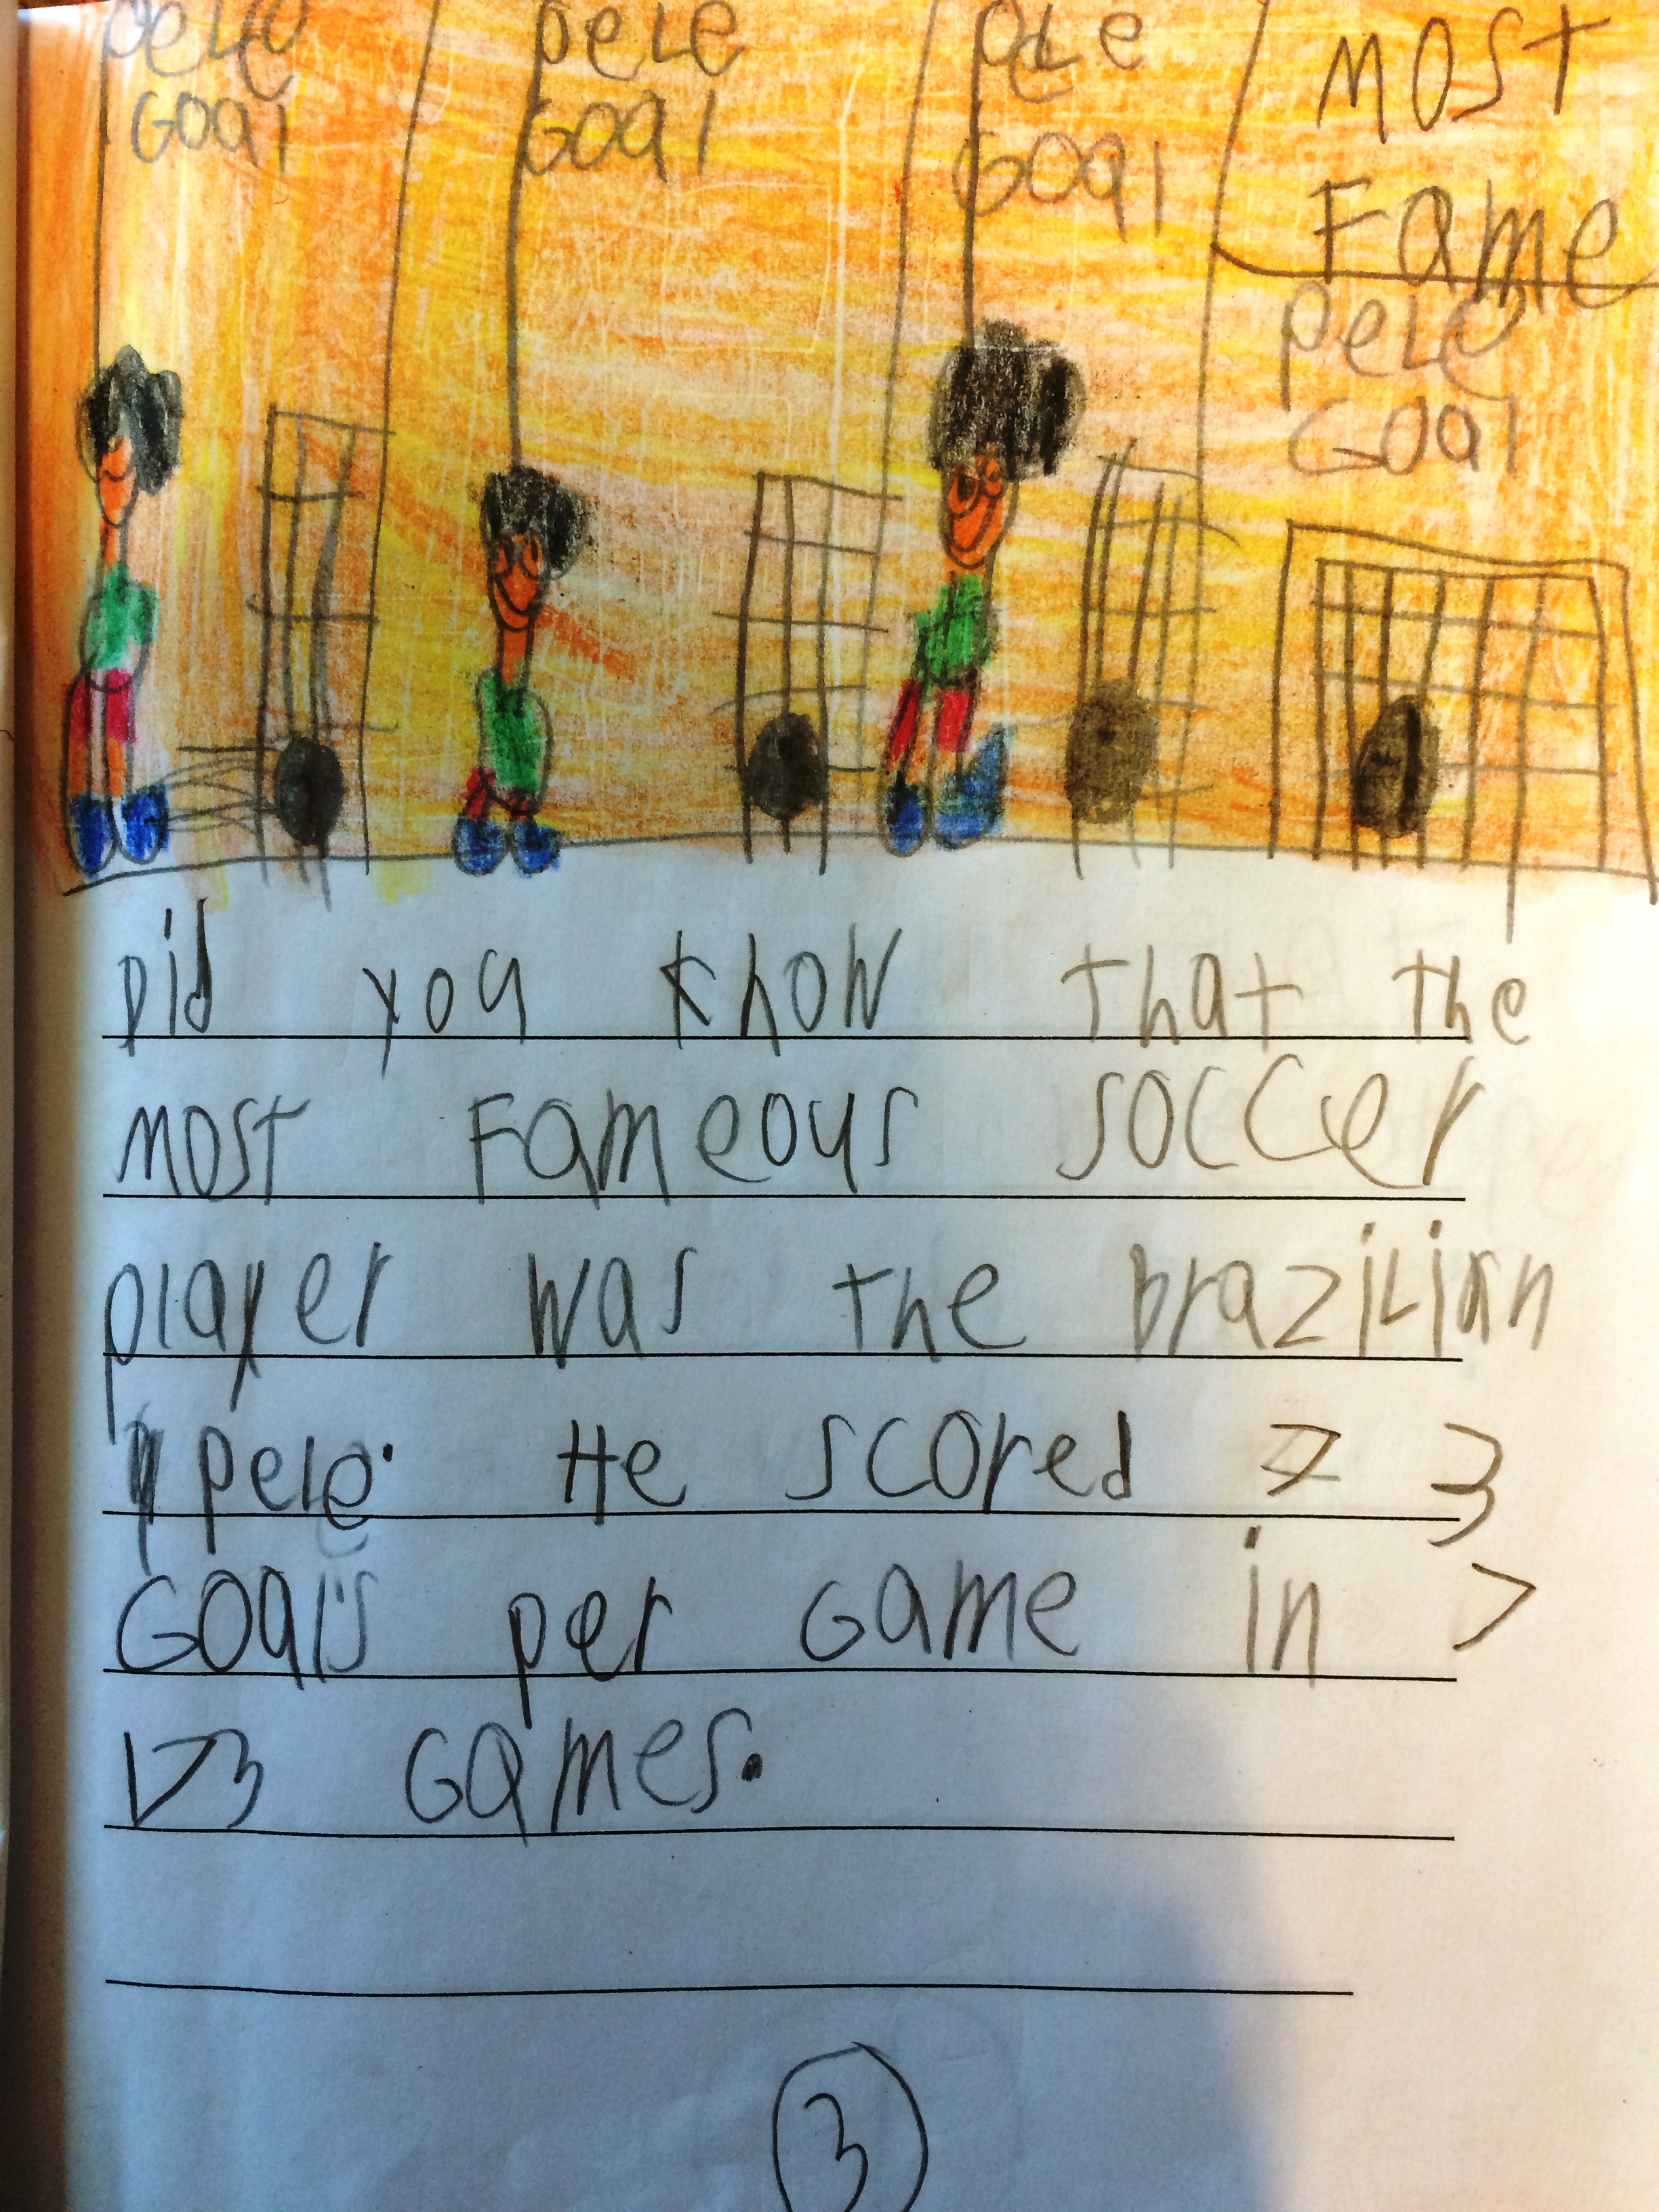 PeLe
Goal
PeLe
Goal
PeLe
Goal
Most
Fame
PeLe
Goal
Did you know that the
most Fameous soccer
player was the brazilian
pele. He scored 3
Goals per Game in
Games.
3